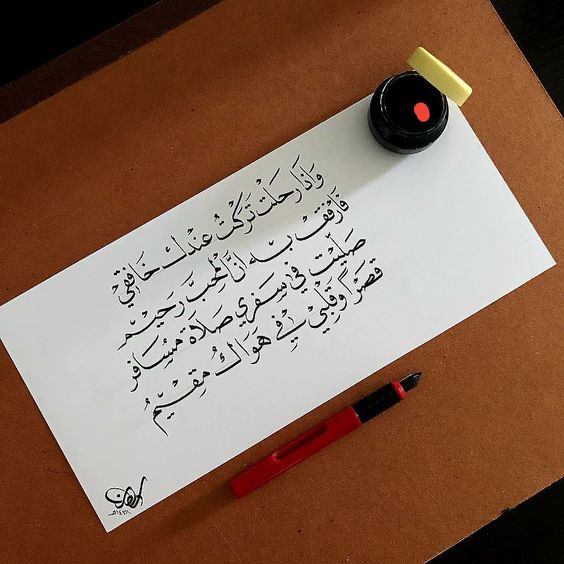 وَإذَا رَحَلْت تَرَكْتُ عِنْدَكَ خَافِقِيْ
فَارْفُقْ بِـهِ انَّ الْمُحِبَّ رَحِيْـمُ
صَلَّيْت فِي سَفَرِي صَلَاةَ مُسَافِرٍ
قَصْراً وَقَلْبِي فِي هَوَاكَ مُقِيْمُ